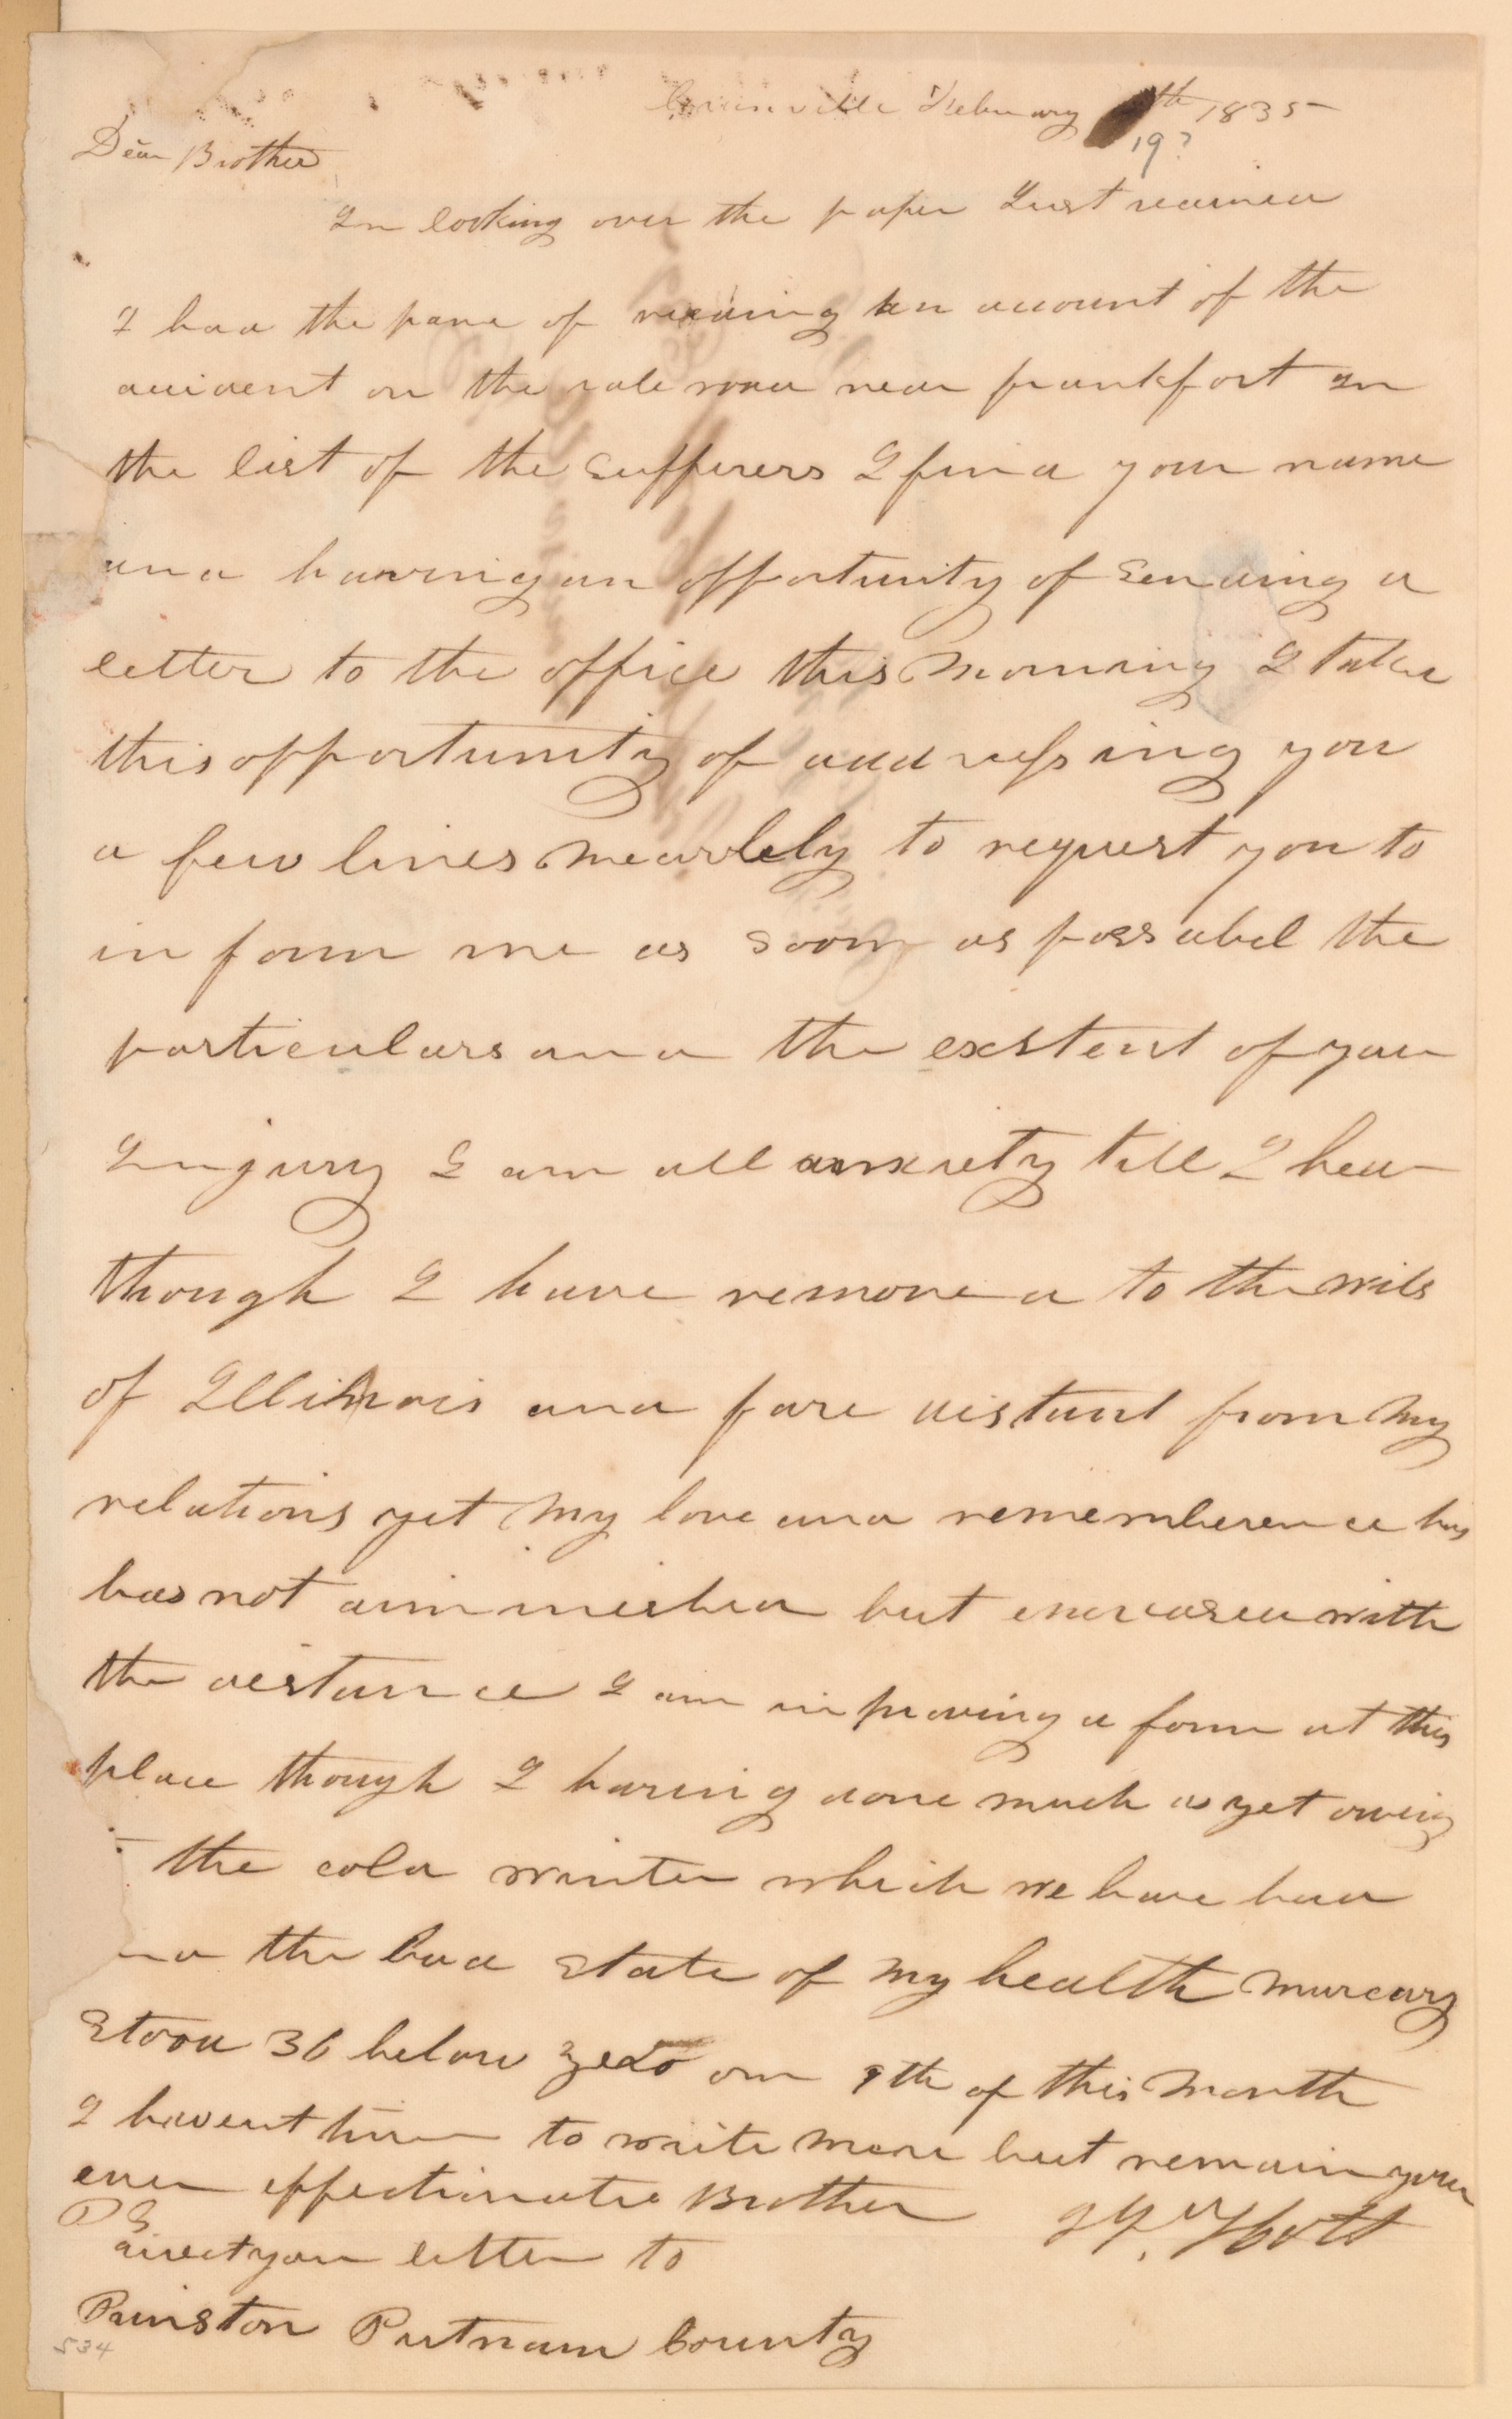 Greenville February th 1835
19?
Dear Brother
In looking over the paper Just received
I had the pane of receiving an account of the
accident on the rale road near frankfort In
the list of the sufferers I find your name
and having an opportunity of sending a
letter to the office this morning I take
this opportunity of addressing you
a few lines mearlely to request you to
in form me as soon as possabel the
particulars and the exstent of your
Injury I am all anxiety till I hear
though I have removed to the wils
of Illinois and fare distant from my
relations yet my love and rememberence has
has not diminnished but encreased with
the distance I am improving a farm at this
place though I having done much as yet owing
the cold winter which we have had
nd the bad state of my health murcury
stood 36 below zero on 9th of this month
I havent time to write more but remain your
ever effectionate Brother
PS
direct your letter to
Prinston Putnam County
534